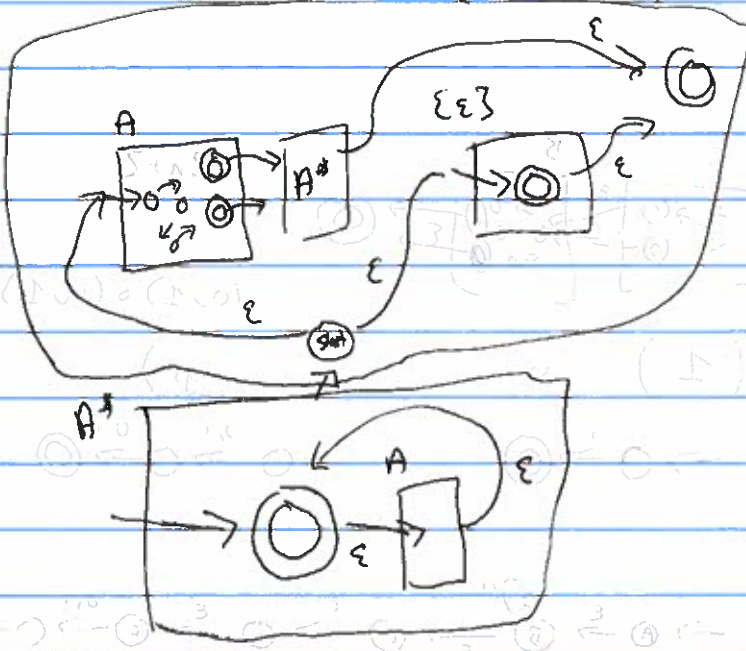 ε
{ε}
A
A*
ε
ε
ε
start
A*
A
ε
ε